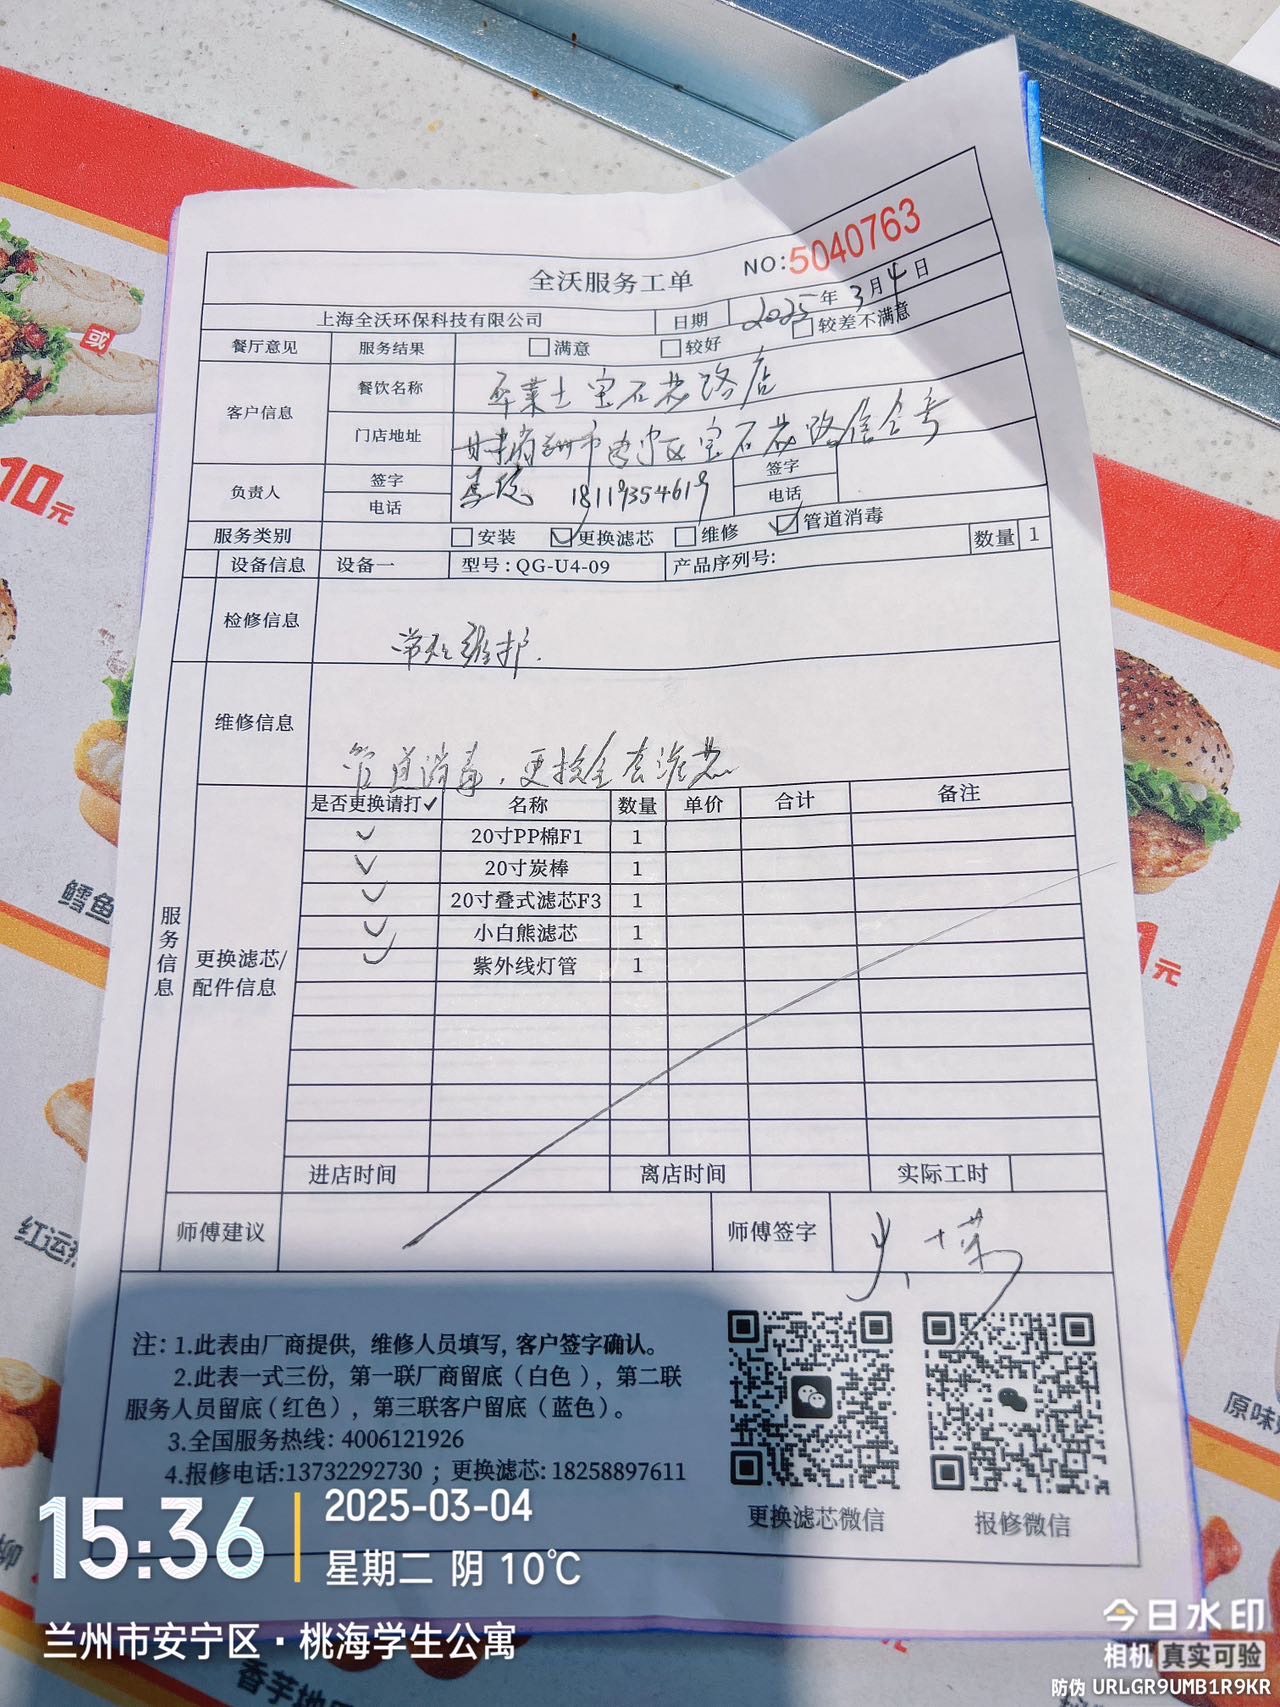 或
10元
鳕鱼
红运
元
原味
香芋地
全沃服务工单
NO:5040763
上海全沃环保科技有限公司 日期 2025年3月4日
餐厅意见 服务结果 满意 较好 较差不满意
客户信息 餐饮名称 华莱士宝石花路店
门店地址 甘肃省兰州市 区宝石花路
负责人 签字 签字
电话 18119354619 电话
服务类别 安装 ✓更换滤芯 维修 ✓管道消毒
设备信息 设备一 型号:QG-U4-09 产品序列号: 数量 1
检修信息 常规维护.
维修信息 管道消毒,更换全套滤芯
服务信息
更换滤芯/
配件信息
是否更换请打✓ 名称 数量 单价 合计 备注
✓ 20寸PP棉F1 1
✓ 20寸炭棒 1
✓ 20寸叠式滤芯F3 1
✓ 小白熊滤芯 1
✓ 紫外线灯管 1
进店时间 离店时间 实际工时
师傅建议 师傅签字
注: 1.此表由厂商提供,维修人员填写,客户签字确认。
2.此表一式三份,第一联厂商留底(白色),第二联
服务人员留底(红色),第三联客户留底(蓝色)。
3.全国服务热线: 4006121926
4.报修电话:13732292730 ; 更换滤芯: 18258897611
更换滤芯微信 报修微信
15:36
2025-03-04
星期二 阴 10℃
兰州市安宁区·桃海学生公寓
今日水印
相机 真实可验
防伪 URLGR9UMB1R9KR